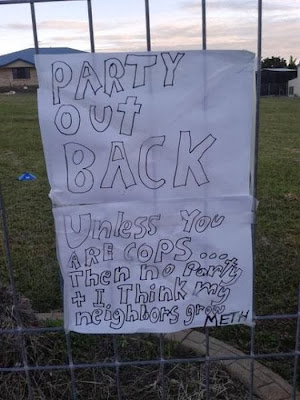 PARTY
OUt
BACK
Unless You
ARE COPS ...
Then no Party
+ I Think my
neighbors grow METH